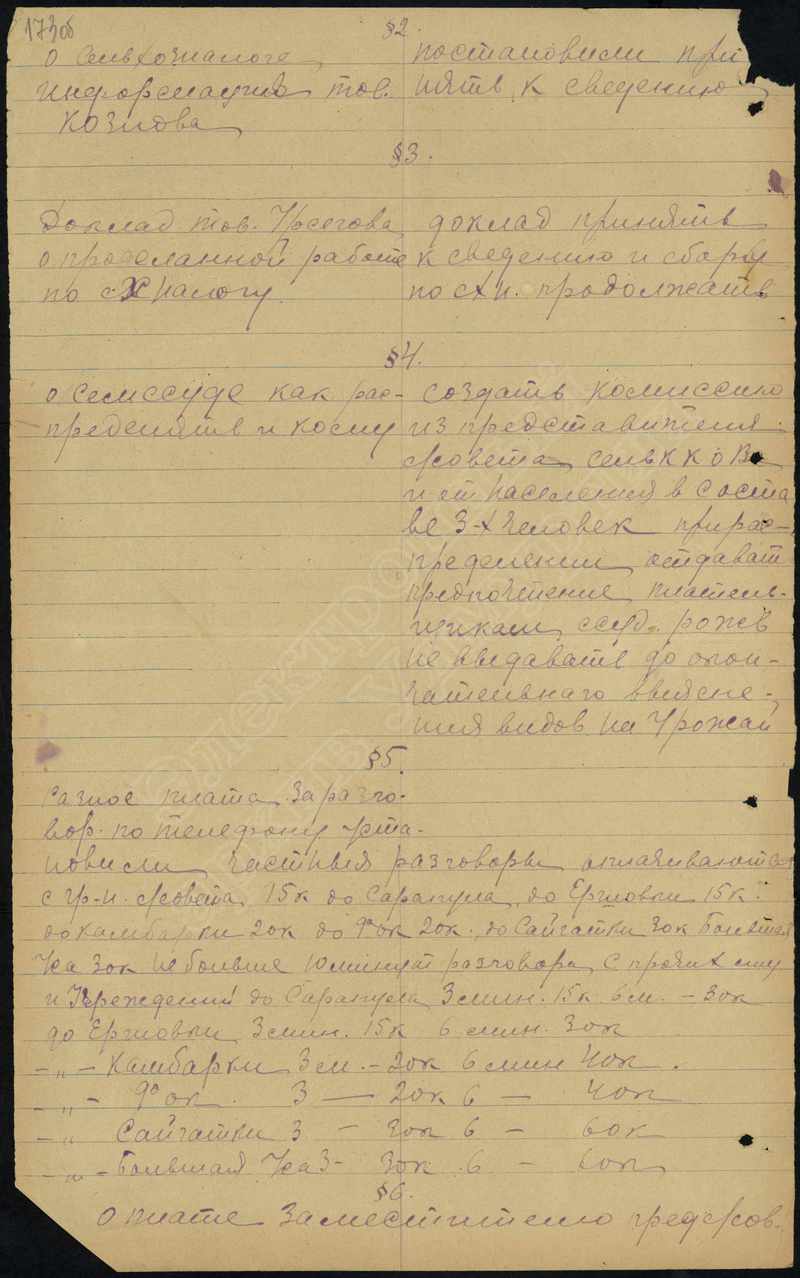 173об
§2.
о сельхозналоге
информация тов.
Козлова
постановили при
нять к сведению
§3.
Доклад тов. Урсегова
о проделанной работе
по сх налогу.
доклад принять
к сведению и сбор
по схн. продолжать
§4.
о семссуде как рас-
пределять и кому
создать комиссию
из представителя
с/совета сельККОВа
и от населения в соста
ве 3-х человек при рас-
пределении отдават
предпочтение платель-
щикам, ссуд. рожь
не выдавать до окон-
чательнаго выясне-
ния видов на Урожай
§5.
Разное плата за разго-
вор. по телефону уста-
новили частныя разговоры оплачиваются
с гр-н. с/совета 15к до Сарапула до Ершовки 15к.
до Камбарки 20к до 20к. до Сайгатки 30к Больш
Уса 30к не больше 10 минут разговора, с прочих
и Учреждений до Сарапула 3 мин. 15к 6 м. - 30к
до Ершовки 3 мин. 15к 6 мин. 30к
-„- Камбарки 3 м. - 20к 6 мин 40к.
-„- 3 — 20к 6 — 40к
-„ Сайгатки 3 - 30к 6 - 60к
-„- Большая Уса 3- 30к 6 - 60к
§6.
О плате Заместителю предс/сов.